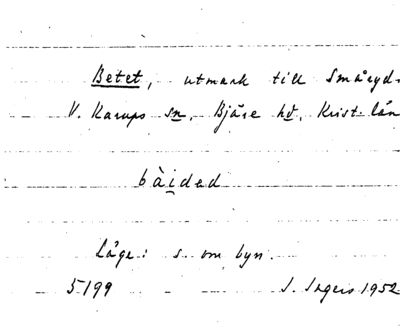 Betet, utmark till Småryd
V. Karups sn, Bjäre hd, Krist. län
bàided
Läge: s om byn.
5199 J. Ingers 1952